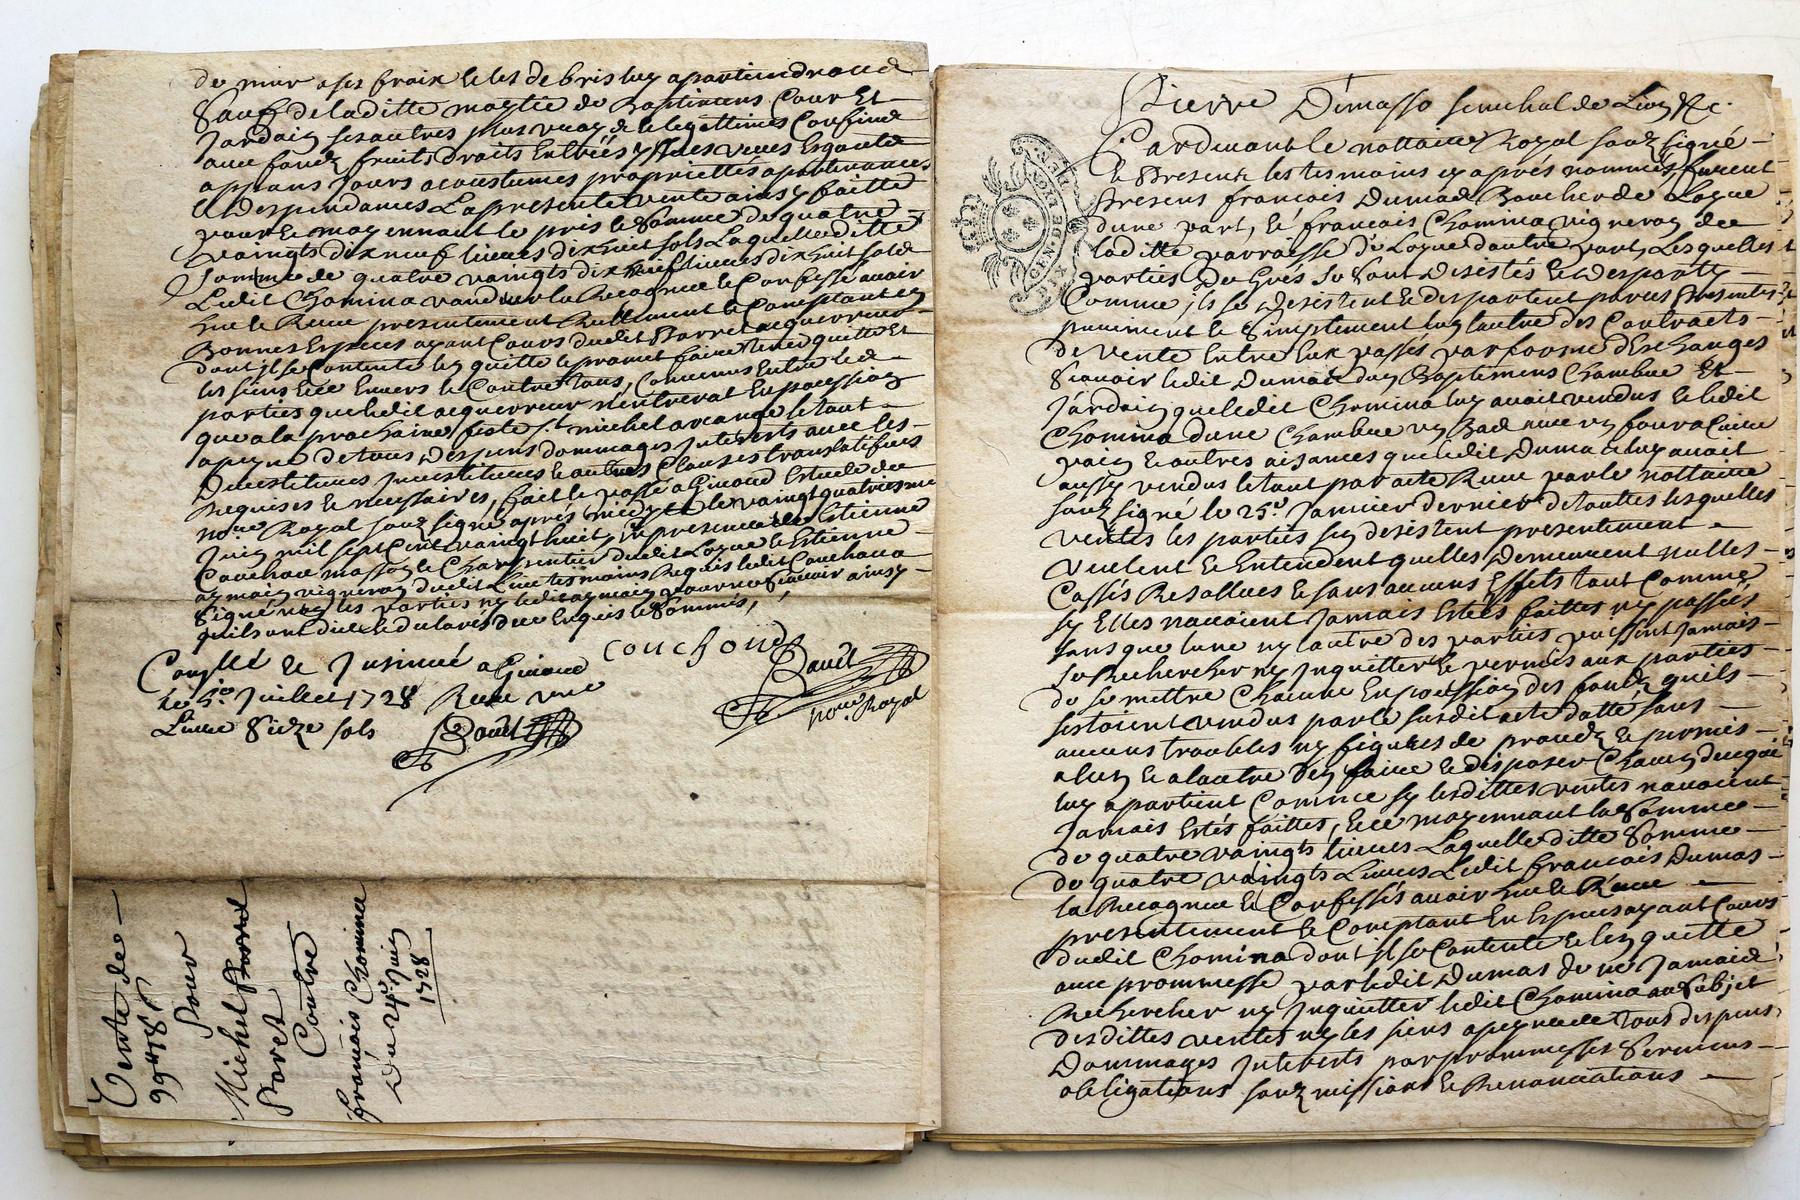 de mur a ses fraix et les debris luy apartiendront
Sauf de laditte moytié de Baptimens Cour Et
Jardain ses autres plus vray & legittimes Confins
avec fondz fruits droits Entrées yssues veues Esgouts
appans Jours acoustumés proprietés apartenances
et despendances La presente vente ainsy faitte
pour et moyennant le pris et Somme de quatre
vaingts dix neuf livres dix huit sols Laquelle ditte
Somme de quatre vaingts dix neuf livres dix huit sols
Ledit Chomina vandeur la Recognu et Confessé avoir
heu et Receu presentement Reellement et Comptant en
Bonnes Especes ayant Cours dudit Porret acquerreur
dont il se Contente len quitte et promet faire tenir quitte Et
les siens Envers et Contre tous, Convenus Entre les
parties que ledit acquerreur nentrerat En procession
que a la prochaine feste St michel arcange le tout
a peyne de tous despens dommages Interests avec les
Devestitures Investitures et autres Clauses translatifves
Requises et necessaires, fait et passé a Givord Estude du
nore Royal souz signé aprés midy le vaingt quatriesme
Juin mil sept Cent vaingt huit, En presence de Estienne
Couchoud masson et Charpentier dudit Loyre et Estienne
aymain vigneron dudit Lieu tesmoins Requis ledit Couchoud
signé non les parties ny ledit aymain pour ne scavoir ainsy
quils ont dit et declarés de ce Enquis et Sommés,
couchoud
Bauït
nore. Royal
Conllé et Insinué a Givord
le 5e Juillet 1728 Receu une
Livre Sieze sols
Bauït
Vente de
99 # 18 s
Pour
Michel
Poret
Contre
françois Chomina
Du 24e Juin
1728
Pierre Démasso senechal de Lion &c.
Pardevant le nottaire Royal souz signé
et Presents les tesmoins cy aprés nommés furent
Presens françois Dumas Boucher de Loyre
dune part, et françois Chomina vigneron de
laditte parroisse de Loyre dautre part, Lesquelles
parties De Grés se Sont Desistés et Desparty
Comme ils se Desistent et despartent par ces Presentes
purement et Simplement lun lautre des Contracts
de vente Entre Eux passés par forme dEschanges
Scavoir ledit Dumas dun Baptimens Chambre Et
Jardain que ledit Chomina luy avoit vendus et ledit
Chomina dune Chambre un Bas
pain et autres aisances que ledit Dumas luy avoit
aussy vendus le tout par acte Receu par le nottaire
souz signé le 25e Janvier dernier de toutes lesquelles
ventes les parties sen desistent presentement
veulent et Entendent quelles Demeurent nulles
Cassés Resollues et sans aucuns Effets tout Comme
sy Elles navoient Jamais Estés faittes ny passés
sans que lune ny lautre des parties puissent Jamais
se Rechercher ny Inquietter et permis aux parties
de se mettre Chacune En pocession des fondz quils
sestoient vendus par le susdit acte datté sans
aucuns troubles ny figures de procedz et permis
a lun et a lautre den faire et disposer Chacun de ce qui
luy apartient Comme sy lesdittes ventes navoient
Jamais Estés faittes, Et ce moyennant la Somme
de quatre vaingts livres Laquelle ditte Somme
de quatre vaingts Livres Ledit françois Dumas
la Recognu et Confessés avoir heu et Receu
presentement et Comptant En Especes ayant Cours
dudit Chomina dont il se Contente et len quitte
avec prommesse par ledit Dumas de ne Jamais
Rechercher ny Inquietter ledit Chomina au Subjet
desdittes ventes ny les siens a peyne de tous despens
Dommages Interests par prommesses Sermens
obligations souz missions et Renonciations
GEN. DE LYON